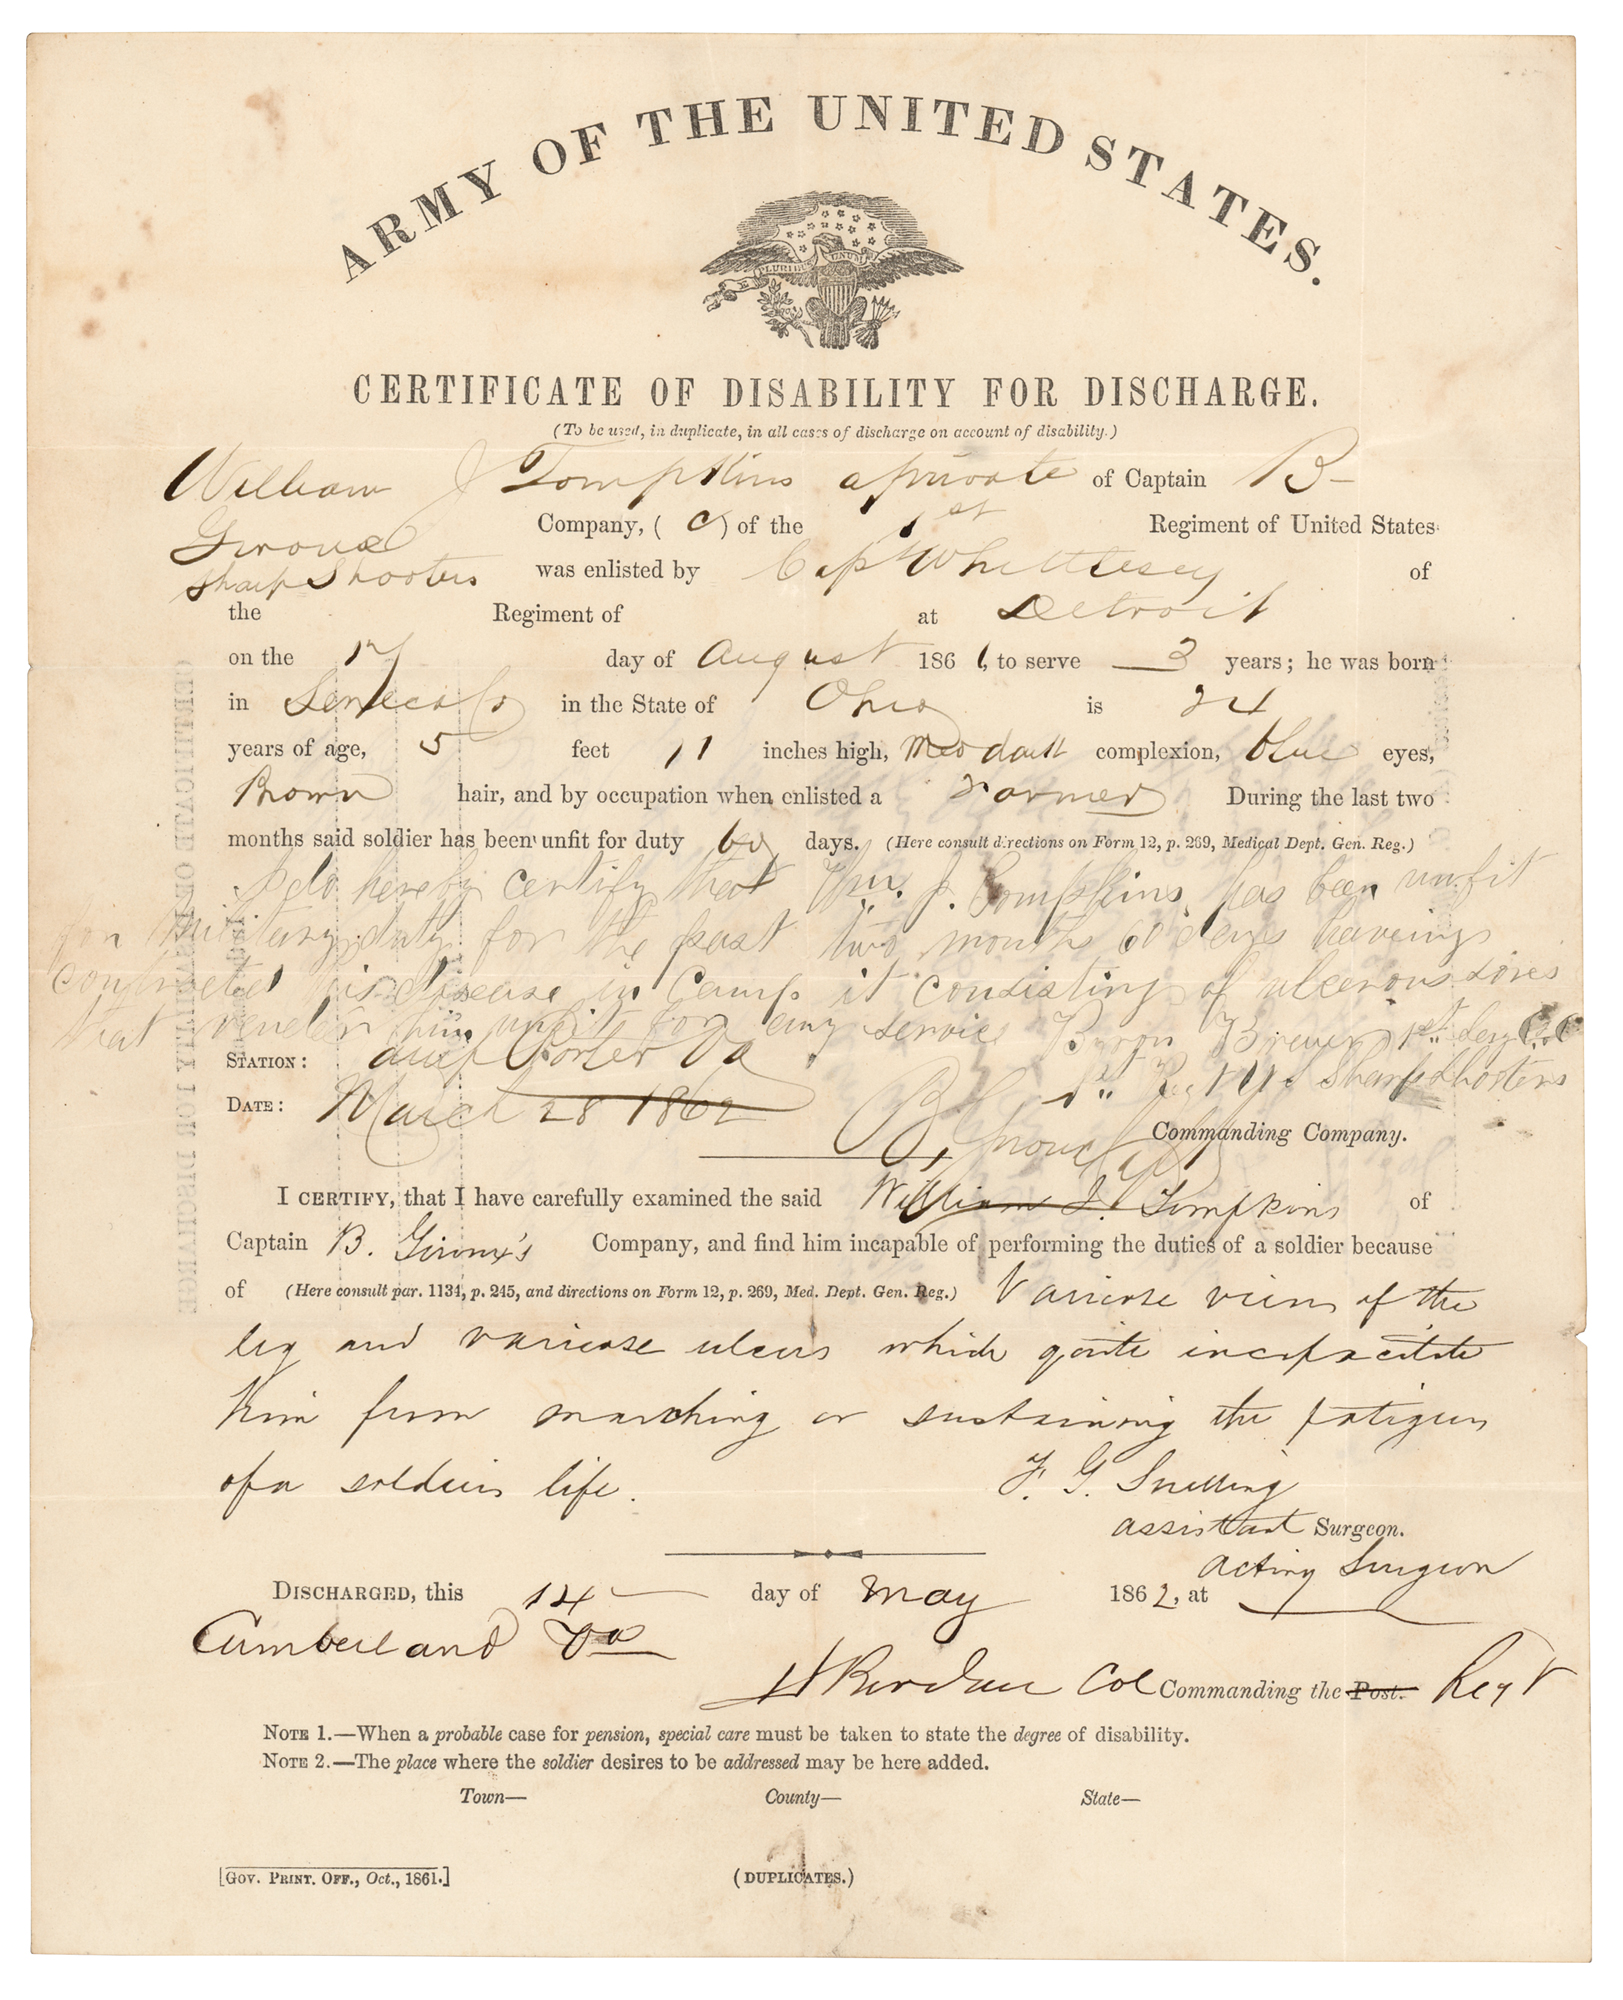 ARMY OF THE UNITED STATES.
E PLURIBUS UNUM
CERTIFICATE OF DISABILITY FOR DISCHARGE.
(To be used, in duplicate, in all cases of discharge on account of disability.)
William J Tompkins a private of Captain B-
Giroux Company, (C) of the 1st Regiment of United States
Sharp Shooters was enlisted by Cap Whittlesey of
the Regiment of at Detroit
on the 17 day of August 1861, to serve 3 years; he was born
in Seneca Co in the State of Ohio is 24
years of age, 5 feet 11 inches high, complexion, blue eyes,
Brown hair, and by occupation when enlisted a Farmer During the last two
months said soldier has been unfit for duty 60 days. (Here consult directions on Form 12, p. 269, Medical Dept. Gen. Reg.)
I do hereby certify that Wm. J. Tompkins has been unfit
for military duty for the past two months 60 days haveing
contracted his disease in Camp it consisting of ulcerous sores
that render him unfit for any service Byron Brewer 1st Serg Co C
STATION: Camp Porter Va 1st Reg U S Sharp Shooters
DATE: March 28 1862 B, Giroux Capt Commanding Company.
I CERTIFY, that I have carefully examined the said William J. Tompkins of
Captain B. Giroux's Company, and find him incapable of performing the duties of a soldier because
of (Here consult par. 1134, p. 245, and directions on Form 12, p. 269, Med. Dept. Gen. Reg.) Varicose viens of the
leg and varicose ulcers which quite incapacitate
him from marching or sustaining the fatigues
of a soldiers life. F. G. Snelling
assistant Surgeon.
Acting Surgeon
DISCHARGED, this 14 day of May 1862, at
Cumberland Va
H Berdan Col Commanding the Post. Regt
NOTE 1.—When a probable case for pension, special care must be taken to state the degree of disability.
NOTE 2.—The place where the soldier desires to be addressed may be here added.
Town— County— State—
[GOV. PRINT. OFF., Oct., 1861.] (DUPLICATES.)